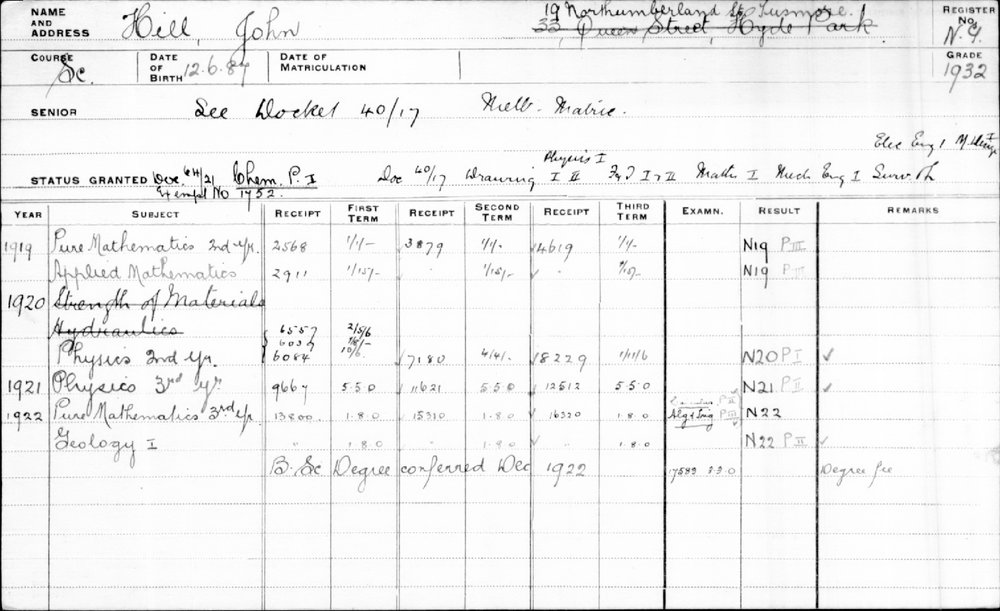 NAME AND ADDRESS Hill, John 19 Northumberland St Tusmore.
33, Queen Street, Hyde Park.
REGISTER No. N.G.
COURSE Sc. DATE OF BIRTH 12.6.87 DATE OF MATRICULATION GRADE 1932
SENIOR See Docket 40/17 Melb. Matric.
Elec Eng I
Physics I
STATUS GRANTED Doc 64/21 Chem. P. I Doc 40/17 Drawing I II I & II Maths I Mech Eng I Surv
Exempt No 1752.
YEAR SUBJECT RECEIPT FIRST TERM RECEIPT SECOND TERM RECEIPT THIRD TERM EXAMN. RESULT REMARKS
1919 Pure Mathematics 2nd yr. 2568 1/1/- 3879 1/1/- 4619 1/1/- N19 P III
Applied Mathematics 2911 1/15/- " 1/15/- " N19 P III
1920 Strength of Materials
Hydraulics 6557 2/5/6
6037
Physics 2nd yr. 6084 10/6 7180 4/4/- 8229 1/11/6 N20 P I ✓
1921 Physics 3rd yr. 9667 5.5.0 11621 5.5.0 12512 5.5.0 N21 P II ✓
P II
1922 Pure Mathematics 3rd yr 13800 1.8.0 15310 1.8.0 16320 1.8.0 Alg & Trig P III N22
Geology I " 1.8.0 " 1.8.0 " 1.8.0 N22 P II ✓
B. Sc Degree conferred Dec 1922 17583 3.3.0 Degree fee